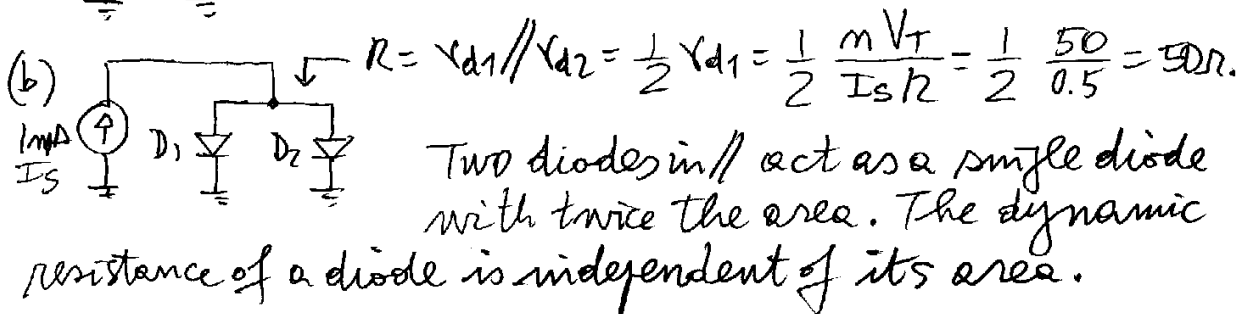 (b) R = rd1//rd2 = 1/2 rd1 = 1/2 nVT/(IS/2) = 1/2 50/0.5 = 50Ω.
1mA
IS
D1 D2
Two diodes in // act as a single diode
with twice the area. The dynamic
resistance of a diode is independent of its area.